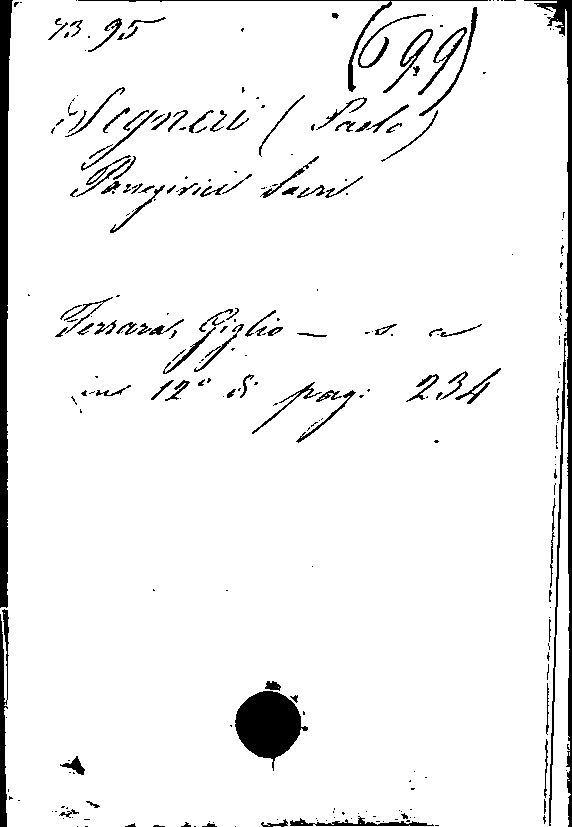 73.95
(699)
Segneri (Paolo)
Panegirici Sacri.
Ferrara, Giglio — s. a
in 12° di pag: 234